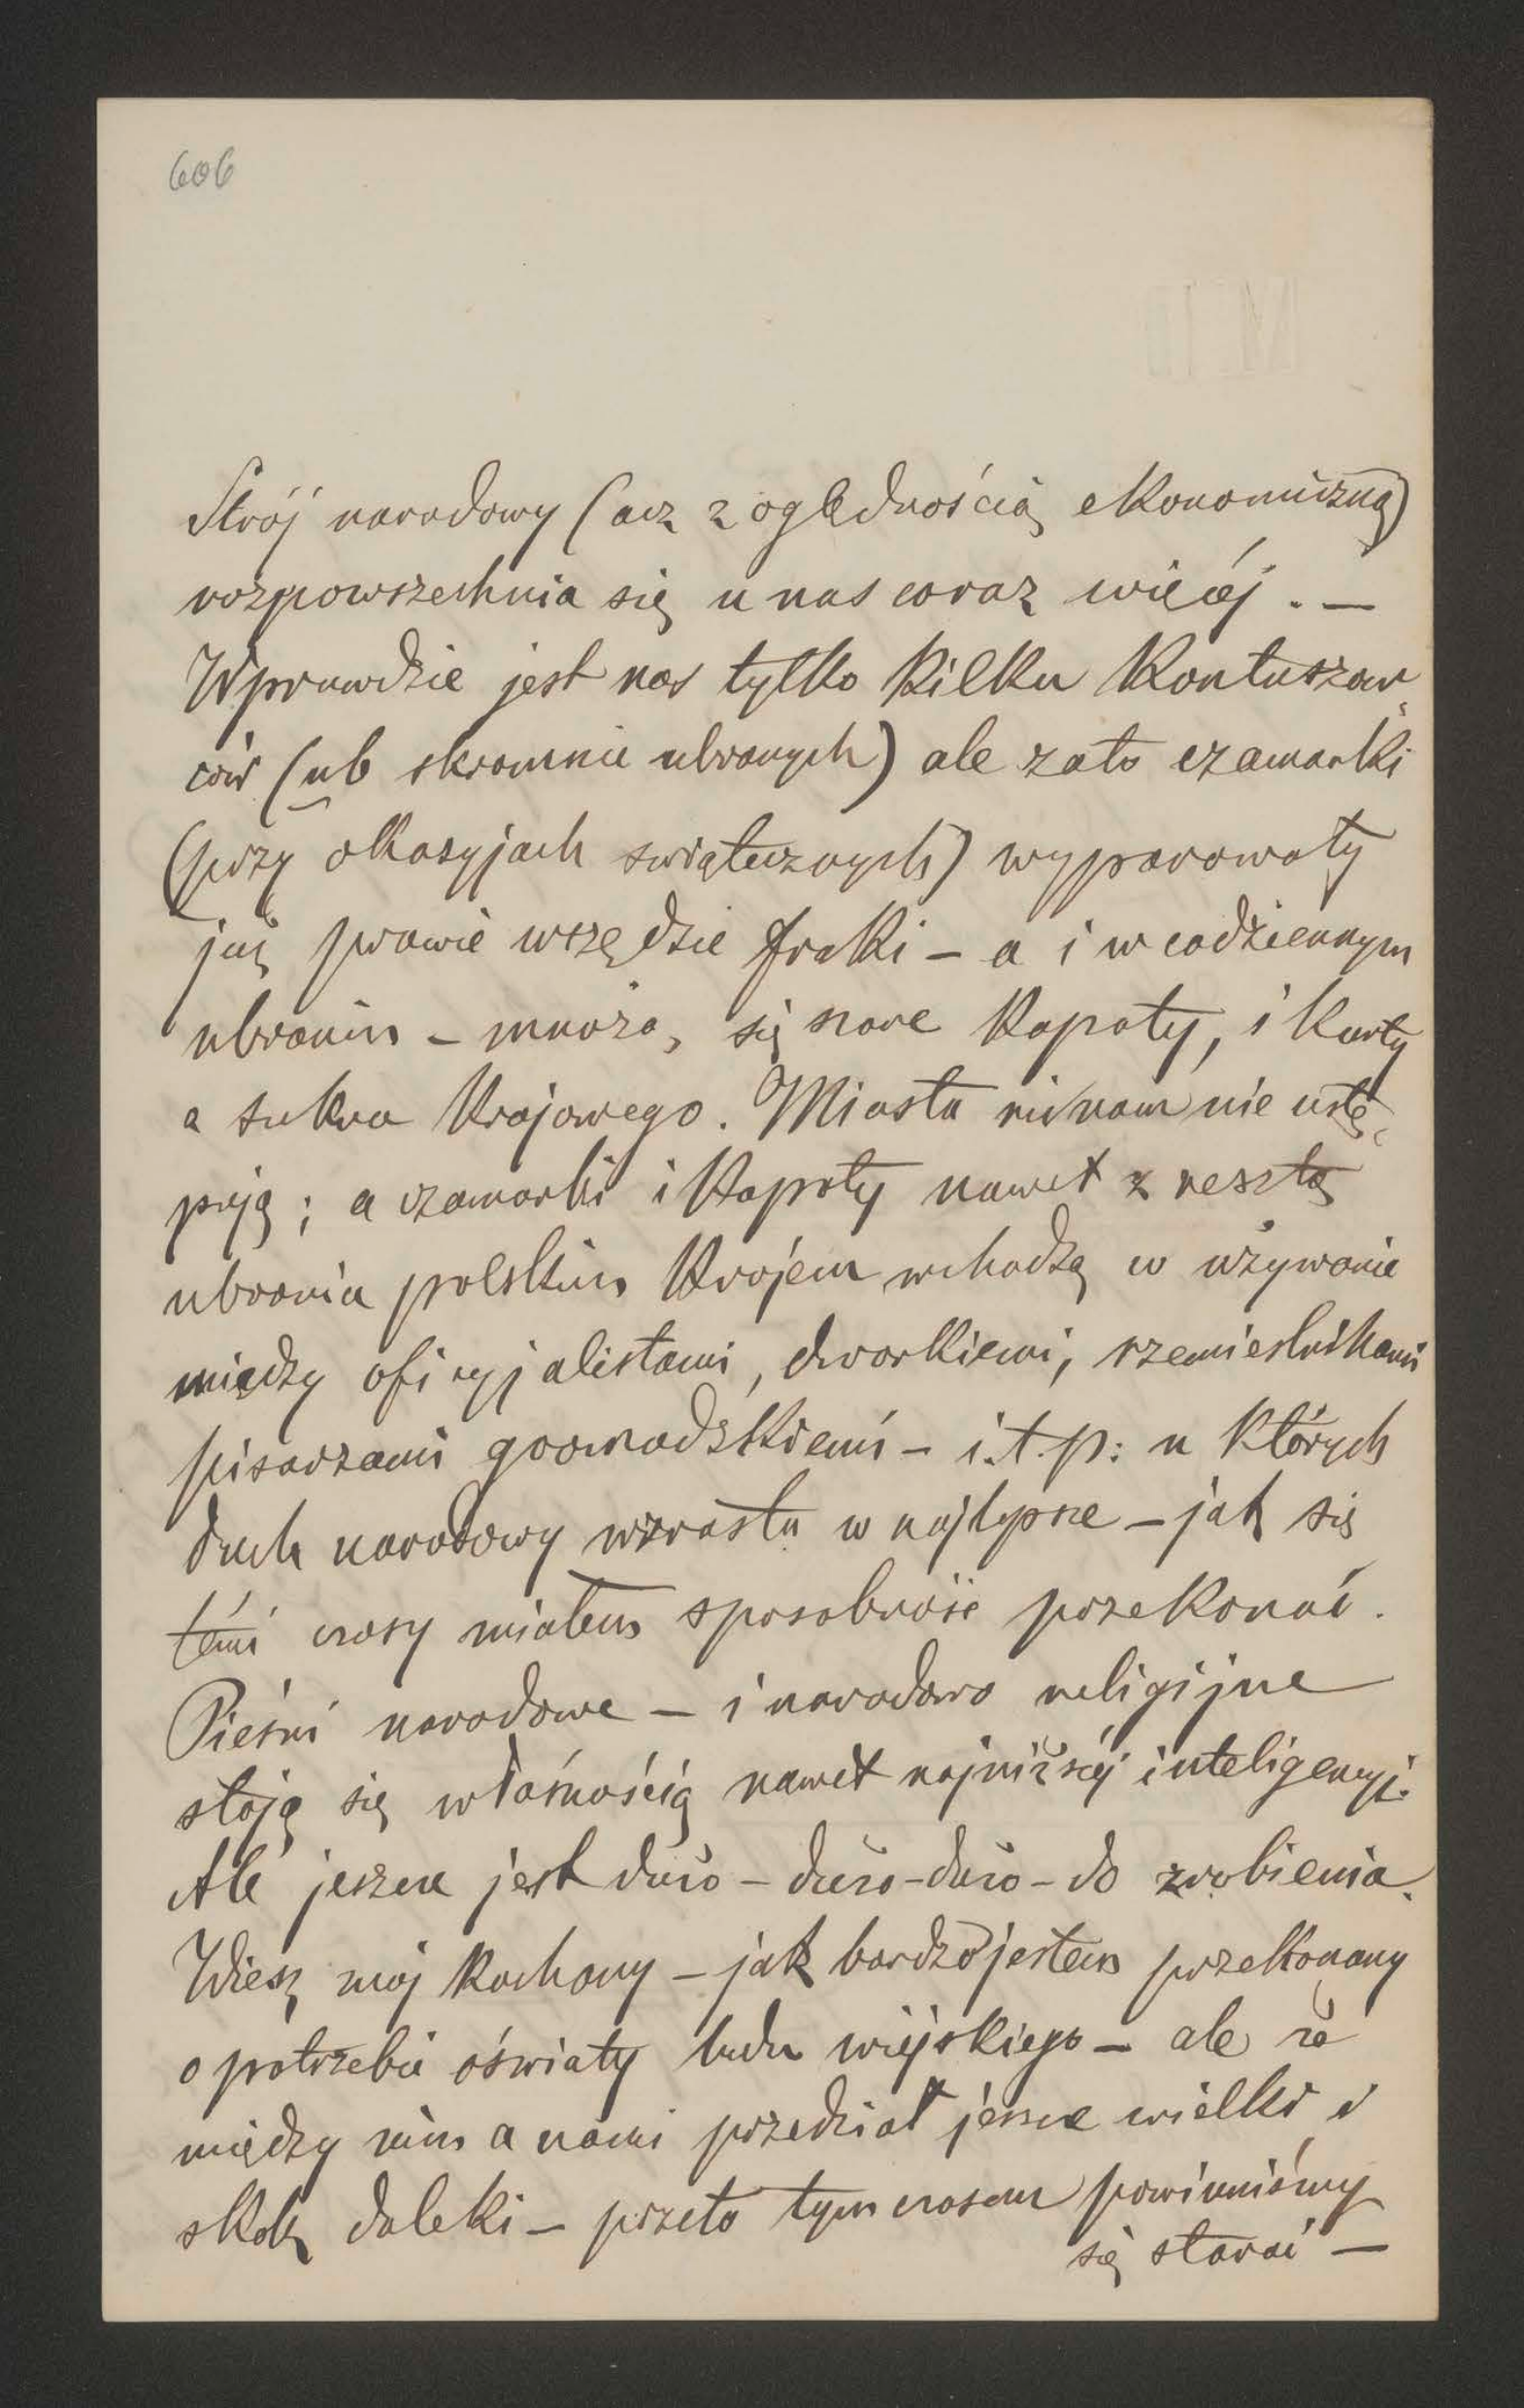 606
Strój narodowy (acz z oględnością ekonomiczną)
rozpowszechnia się u nas coraz więcéj. —
Wprawdzie jest nas tylko kilku kontuszow
ców (nb skromnie ubranych) ale zato czamarki
(przy okasyjach swiątecznych) wyparowały
już prawie wszędzie fraki – a i w codziennym
ubraniu – mnożą się szare kapoty, i kurty
z sukna krajowego. Miasta nie/nam nie ustę
pują; a czamarki i kapoty nawet z resztą
ubrania polskim krojem wchodzą w używanie
między oficyjalistami, dworskiemi, rzemieslnikami
pisarzami gromadzkiemi – i.t.p: u których
duch narodowy wzrasta w najlepsze – jak się
témi czasy miałem sposobność przekonać.
Pieśni narodowe – i narodowo religijne
stają się własnością nawet najniższéj inteligencyi.
Ale jeszcze jest dużo – dużo – dużo – do zrobienia.
Wiesz mój kochany – jak bardzo jestem przekonany
o potrzebie oświaty ludu wiejskiego – ale że
między nim a nami przedział jeszcze wielki i
skok daleki – przeto tymczasem powinniśmy
się starać —